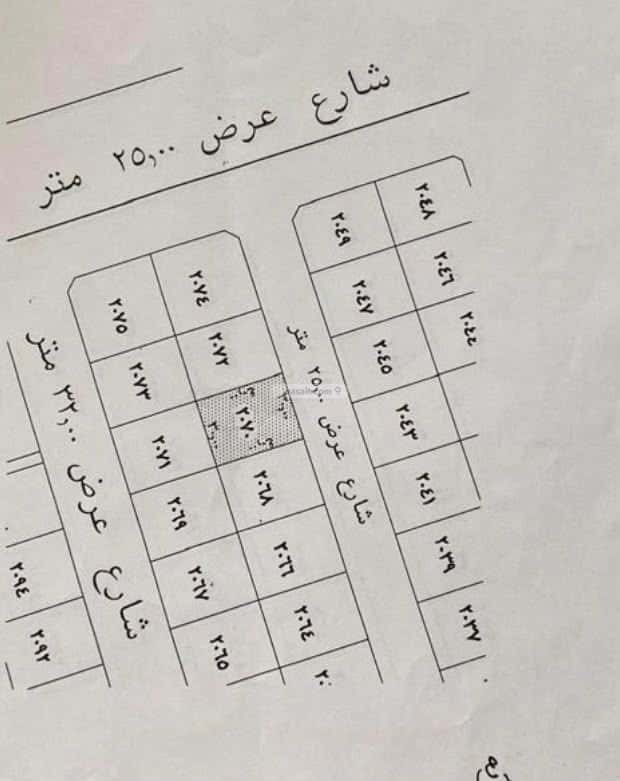 شارع عرض ٢٥,٠٠ متر
٢٠٤٨
٢٠٤٩
٢٠٤٦
٢٠٤٧
٢٠٤٤
٢٠٤٥
٢٠٤٣
٢٠٤١
٢٠٣٩
٢٠٣٧
شارع عرض ٢٥,٠٠ متر
٢٠٧٤
٢٠٧٥
٢٠٧٢
٢٠٧٣
٢٠٧٠
٢٠٧١
٢٠٦٨
٢٠٦٩
٢٠٦٦
٢٠٦٧
٢٠٦٤
٢٠٦٥
شارع عرض ٣٢,٠٠ متر
٢٠٩٤
٢٠٩٢